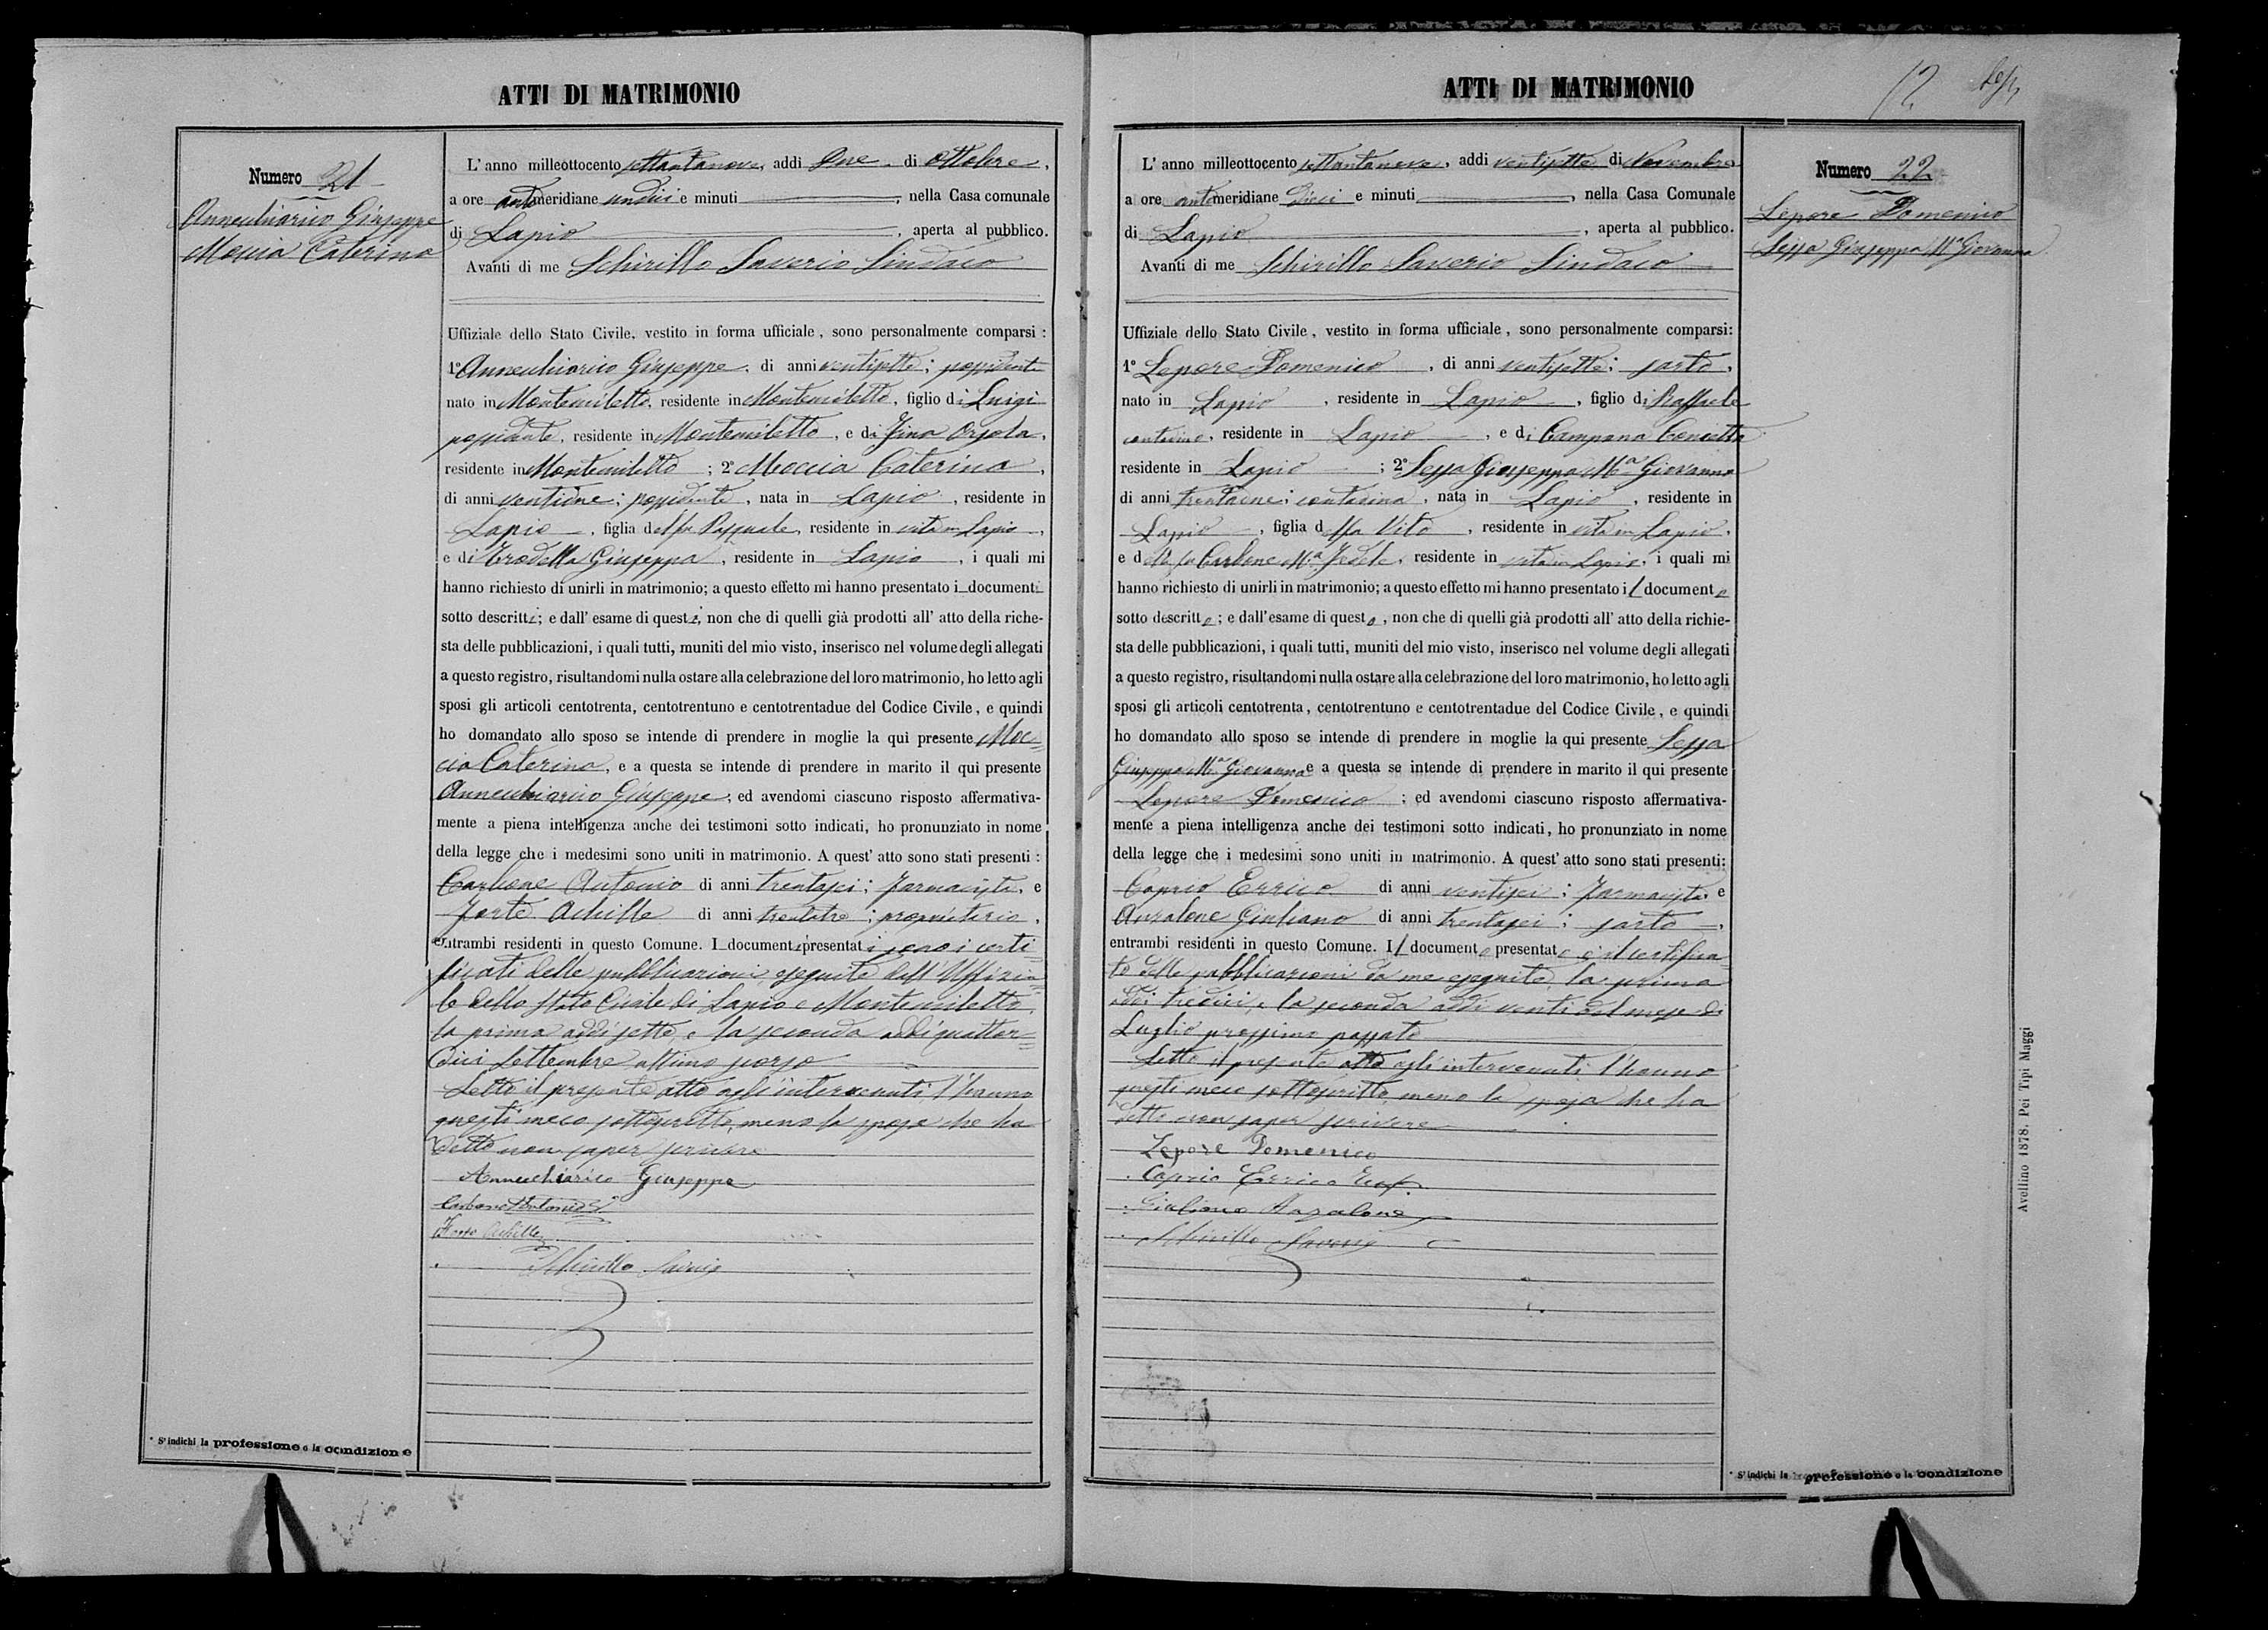 ATTI DI MATRIMONIO
Numero 21
Annechiarico Giuseppe
Moccia Caterina
L'anno milleottocento settantanove, addi due di Ottobre,
a ore antemeridiane undici e minuti , nella Casa comunale
di Lapio , aperta al pubblico.
Avanti di me Schirillo Saverio Sindaco
Uffiziale dello Stato Civile, vestito in forma ufficiale, sono personalmente comparsi:
1° Annechiarico Giuseppe, di anni ventisette; possidente
nato in Montemiletto, residente in Montemiletto, figlio di Luigi
possidente, residente in Montemiletto, e di Orsola,
residente in Montemiletto; 2° Moccia Caterina,
di anni ventidue; possidente, nata in Lapio, residente in
Lapio, figlia del fu Pasquale, residente in vita in Lapio,
e di Trodella Giuseppa, residente in Lapio, i quali mi
hanno richiesto di unirli in matrimonio; a questo effetto mi hanno presentato i documenti
sotto descritti; e dall'esame di questi, non che di quelli già prodotti all'atto della riche-
sta delle pubblicazioni, i quali tutti, muniti del mio visto, inserisco nel volume degli allegati
a questo registro, risultandomi nulla ostare alla celebrazione del loro matrimonio, ho letto agli
sposi gli articoli centotrenta, centotrentuno e centotrentadue del Codice Civile, e quindi
ho domandato allo sposo se intende di prendere in moglie la qui presente Moc=
cia Caterina, e a questa se intende di prendere in marito il qui presente
Annechiarico Giuseppe; ed avendomi ciascuno risposto affermativa-
mente a piena intelligenza anche dei testimoni sotto indicati, ho pronunziato in nome
della legge che i medesimi sono uniti in matrimonio. A quest'atto sono stati presenti:
Carbone Antonio di anni trentasei; farmacista, e
Forte Achille di anni trentatre; proprietario,
entrambi residenti in questo Comune. I documenti presentati sono i certi=
ficati delle pubblicazioni eseguite dall'Uffizia=
le dello Stato Civile di Lapio e Montemiletto,
la prima addi sette, e la seconda addi quattor=
dici Settembre ultimo scorso
Letto il presente atto agli intervenuti l'hanno
questi meco sottoscritto, meno la sposa che ha
detto non saper scrivere
Annechiarico Giuseppe
Carbone Antonio
Forte Achille
Schirillo Saverio
* S'indichi la professione o la condizione
ATTI DI MATRIMONIO
12
Numero 22
Lepore Domenico
Sessa Giuseppa Mª Giovanna
L'anno milleottocento settantanove, addi ventisette di Novembre
a ore antemeridiane dieci e minuti , nella Casa Comunale
di Lapio , aperta al pubblico.
Avanti di me Schirillo Saverio Sindaco
Uffiziale dello Stato Civile, vestito in forma ufficiale, sono personalmente comparsi:
1° Lepore Domenico, di anni ventisette; sarto,
nato in Lapio, residente in Lapio, figlio di Raffaele
contadino, residente in Lapio, e di Campana Concetta
residente in Lapio; 2° Sessa Giuseppa Mª Giovanna
di anni trentadue; contadina, nata in Lapio, residente in
Lapio, figlia del fu Vito, residente in vita in Lapio,
e della fu Carbone Mª Fedele, residente in vita in Lapio, i quali mi
hanno richiesto di unirli in matrimonio; a questo effetto mi hanno presentato il documento
sotto descritto; e dall'esame di questo, non che di quelli già prodotti all'atto della richie-
sta delle pubblicazioni, i quali tutti, muniti del mio visto, inserisco nel volume degli allegati
a questo registro, risultandomi nulla ostare alla celebrazione del loro matrimonio, ho letto agli
sposi gli articoli centotrenta, centotrentuno e centotrentadue del Codice Civile, e quindi
ho domandato allo sposo se intende di prendere in moglie la qui presente Sessa
Giuseppa Mª Giovanna e a questa se intende di prendere in marito il qui presente
Lepore Domenico; ed avendomi ciascuno risposto affermativa-
mente a piena intelligenza anche dei testimoni sotto indicati, ho pronunziato in nome
della legge che i medesimi sono uniti in matrimonio. A quest'atto sono stati presenti:
Caprio Errico di anni ventisei; farmacista e
Anzalone Giuliano di anni trentasei; sarto,
entrambi residenti in questo Comune. Il documento presentato è il certifica=
to delle pubblicazioni da me eseguite, la prima
addi tredici, e la seconda addi venti del mese di
Luglio prossimo passato
Letto il presente atto agli intervenuti l'hanno
questi meco sottoscritto, meno la sposa che ha
detto non saper scrivere
Lepore Domenico
Caprio Errico
Giuliano Anzalone
Schirillo Saverio
* S'indichi la professione o la condizione
Avellino 1878. Pei Tipi Maggi